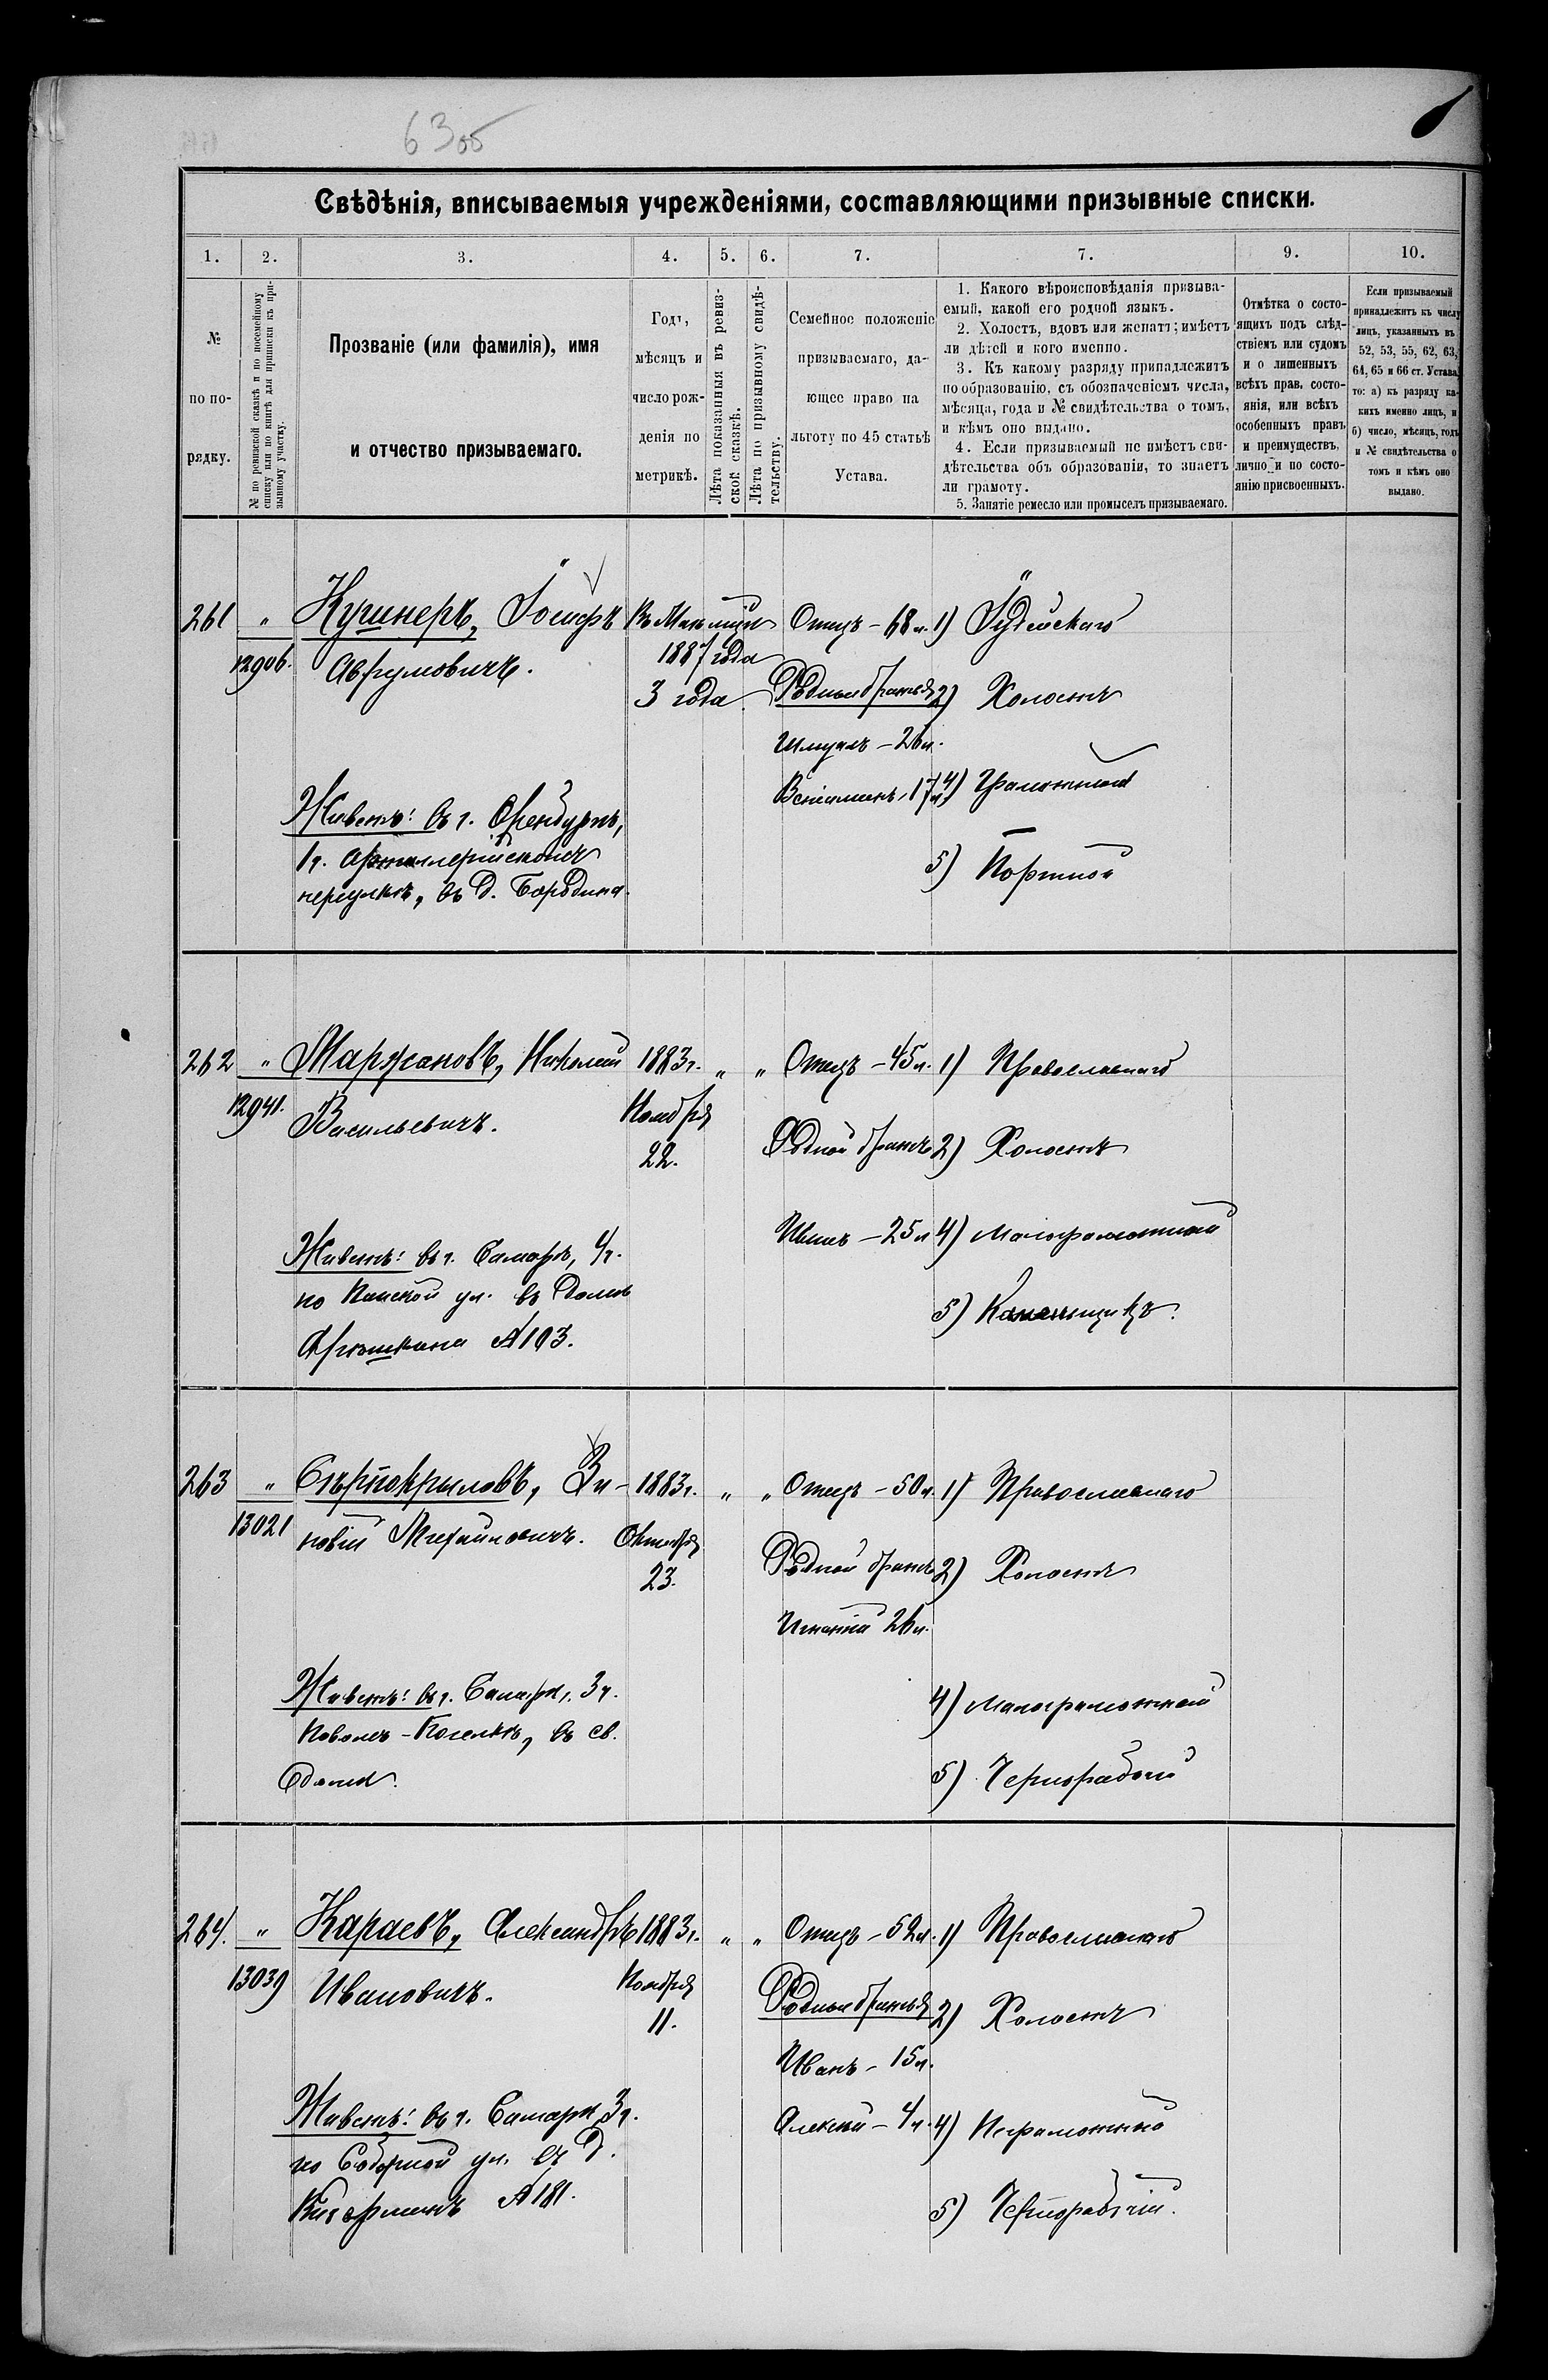 63об
Свѣдѣнія, вписываемыя учрежденіями, составляющими призывные списки.
1. 2. 3. 4. 5. 6. 7. 7. 9. 10.
№
по по-
рядку.
№ по ревизской сказкѣ и по посемейному
списку или по книгѣ для приписки къ при-
зывному участку.
Прозваніе (или фамилія), имя
и отчество призываемаго.
Годъ,
мѣсяцъ и
число рож-
денія по
метрикѣ.
Лѣта показанныя въ ревиз-
ской сказкѣ.
Лѣта по призывному свидѣ-
тельству.
Семейное положеніе
призываемаго, да-
ющее право на
льготу по 45 статьѣ
Устава.
1. Какого вѣроисповѣданія призыва-
емый, какой его родной языкъ.
2. Холостъ, вдовъ или женатъ; имѣетъ
ли дѣтей и кого именно.
3. Къ какому разряду принадлежитъ
по образованію, съ обозначеніемъ числа,
мѣсяца, года и № свидѣтельства о томъ,
и кѣмъ оно выдано.
4. Если призываемый не имѣетъ сви-
дѣтельства объ образованіи, то знаетъ
ли грамоту.
5. Занятіе ремесло или промыселъ призываемаго.
Отмѣтка о состо-
ящихъ подъ слѣд-
ствіемъ или судомъ
и о лишенныхъ
всѣхъ прав, состо-
янія, или всѣхъ
особенныхъ правъ
и преимуществъ,
лично и по состо-
янію присвоенныхъ.
Если призываемый
принадлежитъ къ числу
лицъ, указанныхъ въ
52, 53, 55, 62, 63,
64, 65 и 66 ст. Устава,
то: а) къ разряду ка-
кихъ именно лицъ, и
б) число, мѣсяцъ, годъ
и № свидѣтельства о
томъ и кѣмъ оно
выдано.
261 " Кушнеръ, Іосифъ
12906. Аврумовичъ.
1887 года
3 года
Отецъ - 68 л.
Родные братья
Шмуль - 26 л.
Веніаминъ, 17 л.
1) Іудейскаго
2) Холостъ
4) Грамотный
5) Портной
Живетъ: въ г. Оренбургѣ,
1 ч. Артиллерійскомъ
переулкѣ, въ д. Бородина.
262 " Маржановъ, Николай 1883 г. " " Отецъ - 45 л. 1) Православнаго
12941. Васильевичъ.
Ноября
22.
Родной братъ 2) Холостъ
Иванъ - 25 л. 4) Малограмотный
5) Каменьщикъ.
Живетъ: въ г. Самарѣ, 4 ч.
по Панской ул. въ домѣ
Арюшкина № 103.
263 " Сѣрпокрыловъ, Зи- 1883 г. " " Отецъ - 50 л. 1) Православнаго
13021 новій Михайловичъ.
Октября
23.
Родной братъ 2) Холостъ
Игнатій 26 л.
4) Малограмотный
5) Чернорабочій
Живетъ: въ г. Самарѣ, 3 ч.
Новомъ-Поселкѣ, въ св.
домѣ.
264. " Караевъ, Александръ 1883 г. " " Отецъ - 52 л. 1) Православнаго
13039 Ивановичъ.
Ноября
11.
Родные братья 2) Холостъ
Иванъ - 15 л.
Алексѣй - 4 л. 4) Неграмотный
5) Чернорабочій.
Живетъ: въ г. Самарѣ 3 ч.
по Соборной ул. въ д.
№ 181.